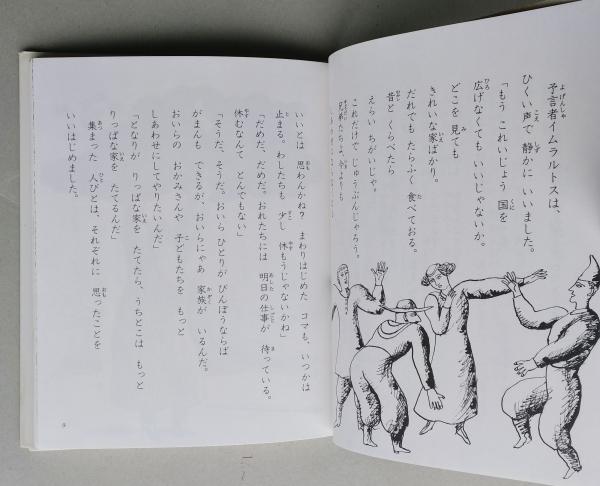 予言者イムラルトスは、
ひくい声で 静かに いいました。
「もう これいじょう 国を
広げなくても いいじゃないか。
どこを 見ても
きれいな家ばかり。
だれでも たらふく 食べておる。
昔と くらべたら
えらい ちがいじゃ。
これだけで じゅうぶんじゃろう。
兄弟たちよ、
いいとは 思わんかね? まわりはじめた コマも、いつかは
止まる。わしたちも 少し 休もうじゃないかね」
「だめだ、だめだ。おれたちには 明日の仕事が 待っている。
休むなんて とんでもない」
「そうだ、そうだ。おいら ひとりが びんぼうならば
がまんも できるが、おいらにゃあ 家族が いるんだ。
おいらの おかみさんや 子どもたちを もっと
しあわせにしてやりたいんだ」
「となりが りっぱな家を たてたら、うちとこは もっと
りっぱな家を たてるんだ」
集まった 人びとは、それぞれに 思ったことを
いいはじめました。
9